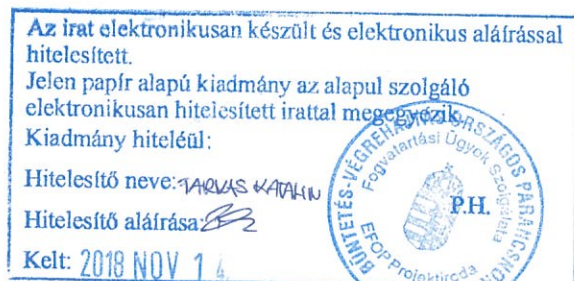 Az irat elektronikusan készült és elektronikus aláírással
hitelesített.
Jelen papír alapú kiadmány az alapul szolgáló
elektronikusan hitelesített irattal megegyezik.
Kiadmány hiteléül:
Hitelesítő neve: TARKAS KATALIN
Hitelesítő aláírása:
Kelt: 2018 NOV 14.
P.H.
BÜNTETÉS-VÉGREHAJTÁS ORSZÁGOS PARANCSNOK
Fogvatartási Ügyek Szolgálata
EFOP Projektiroda